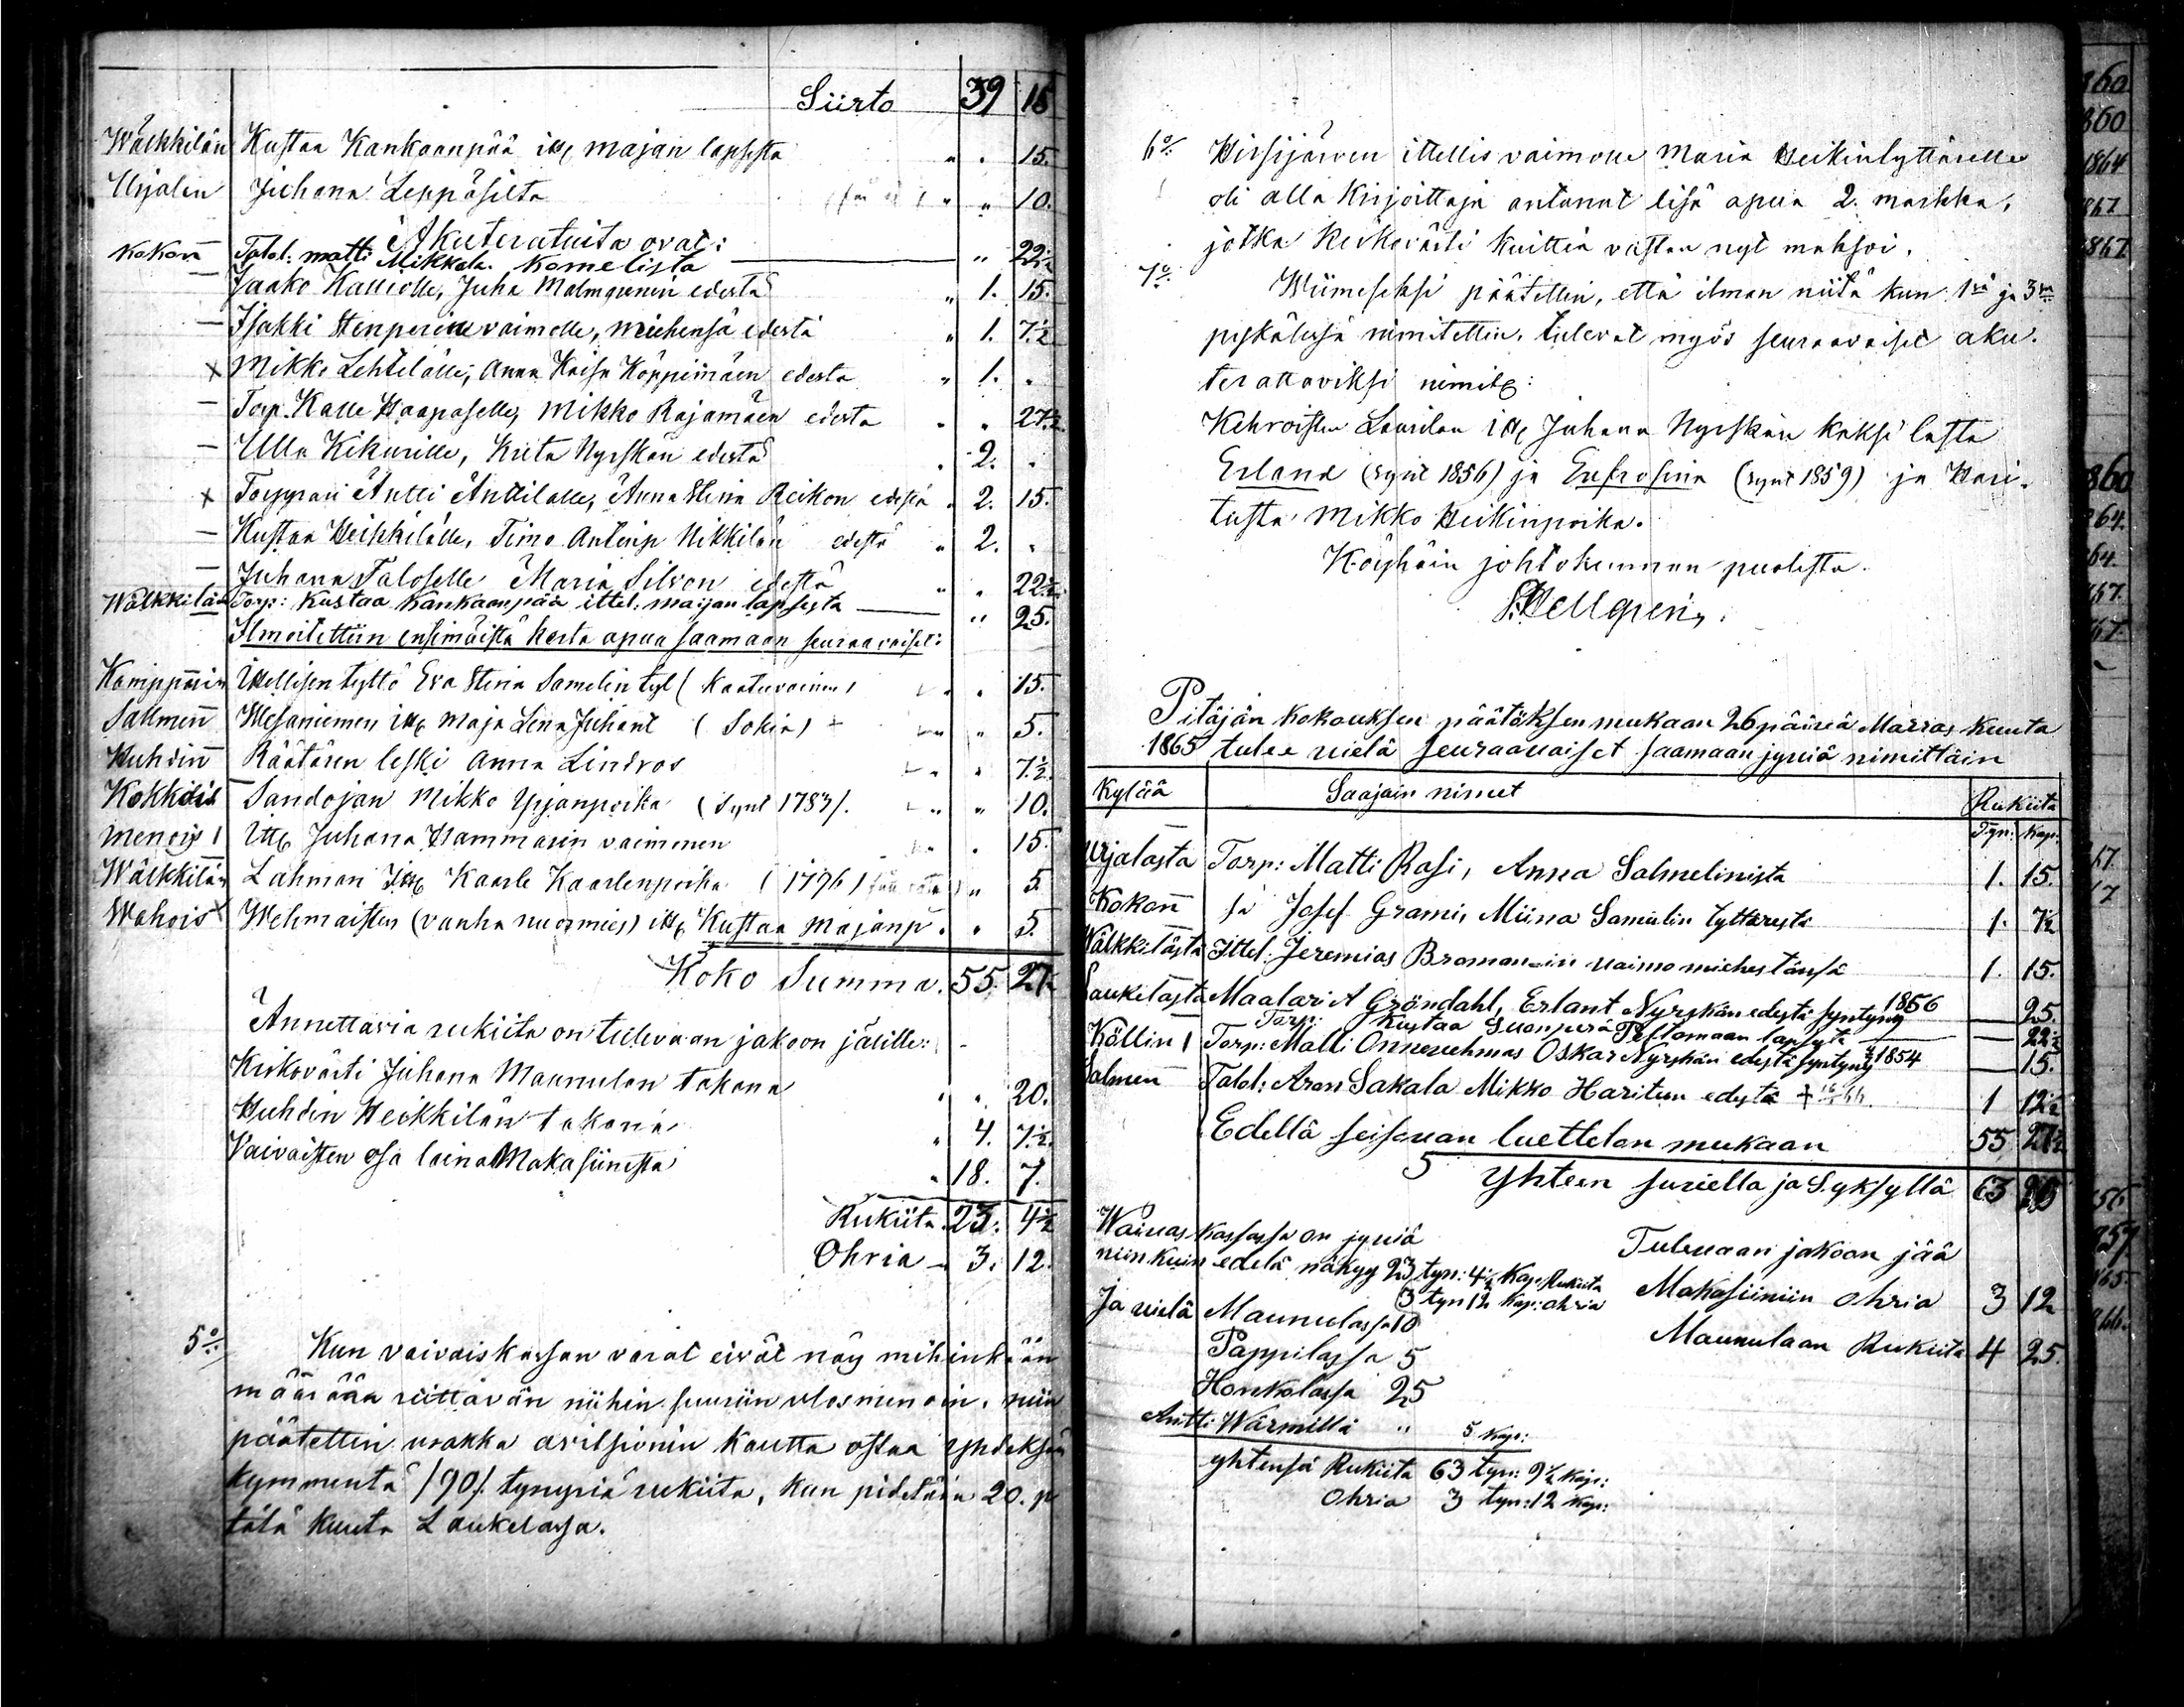 Siirto 39 15
Wälkkilän Kustaa Kankaanpää itt. majan lapsesta " . 15.
Urjalan Juhana Leppäsilta " " 10.
Akuteratuita ovat:
Kokon Talol: matti Mikkola. Komelista — " 22½
— Jaako Kalliolle, Juha Malmgrenin edestä " 1. 15.
— Isakki Stenperin vaimolle, miehensä edestä " 1. 7½
x Mikko Lehtelälle, Anna Kaisa Köppimäen edesta " 1. .
— Torp. Kalle Haapaselle, Mikko Rajamäen edesta " " 27½
— Ulla Kikurille, Kreeta Nyrskän edestä . 2. .
x Torppari Antti Anttilalle, Anna Stina Reikon edestä . 2. 15.
— Kustaa Heikkilälle, Timo Antinp Nikkilän edestä " 2. "
— Juhana Taloselle Maria Silvon edestä " . 22½
Wälkkilän Torp: Kustaa Kankaanpää ittel: maijan lapsesta — " 25.
Ilmoitettiin ensimäistä kerta apua saamaan seuraavaiset:
Kamppärin Itellisen tyttö Eva Stina Samelin tyt (Kaatuvainen) " . 15.
Salmen Wesaniemen itt. Maja Lena Juhant (Sokia) + " " 5.
Huhdin Räätärin leski Anna Lindros " . 7½
Kokkois Sandojan Mikko Yrjänpoika (synt 1783). " " 10.
menois Itt. Juhana Hammarin vaimonen " . 15.
Wälkkilän Lahman Itt. Kaarle Kaarlenpoika (1796) " 5
Wahois x Wehmaisten (vanha nuormies) itt. Kustaa Majanp. . " 5.
Koko Summa. 55. 27½
Annettavia rukiita on tulevaan jakoon jälille:
Kirkovärti Juhana Maunulan takana " . 20.
Huhdin Heikkilän takana " 4. 7½
Vaivaisten osa laina Makasiinista " 18. 7.
Rukiita 23. 4½
Ohria — 3. 12.
5o/. Kun vaivaiskassan varat eivät näy mihinkään
määrään riittävän niihin suuriin ulosmenoin, niin
päätettiin urakka avitsionin kautta ostaa yhdeksän
kymmentä /90/. tynnyriä rukiita, kun pidetään 20. p
tätä kuuta Laukelassa.
6o/. Hirsijärven ittellis vaimolle Maria Heikintyttärelle
oli alla kirjoittaja antanut lisä apua 2. markka,
jotka Kirkovärti kuittia vastaan nyt maksoi.
7o/. Wiimeseksi päätettiin, että ilman niitä kun 1sä ja 3sa
pyskälissä nimitettiin, tulevat myös seuraavaiset aku-
terattaviksi nimit.:
Kehroisten Laurilan itt. Juhana Nyrskän kaksi lasta
Erland (synt 1856) ja Eufrosina (synt 1859) ja Hari-
tusta Mikko Heikinpoika.
Köyhäin johtokunnan puolesta.
Hellgren,
Pitäjän kokouksen päätöksen mukaan 26 päivä Marras kuuta
1865 tulee vielä seuraavaiset saamaan jyviä nimittäin
Kylää Saajain nimet Rukiita
Tyn: Kap:
Urjalasta Torp: Matti Rasi, Anna Salmelinista 1. 15.
Kokon sa Josef Grami, Miina Samulin tyttärestä 1. 7½
Wälkkilästä Ittel: Jeremias Bromanin vaimo miehestänsä 1. 15.
Laukelasta Maalari A Gröndahl, Erlant Nyrskän edestä syntyny 1856 — 25.
Torp: Kustaa Suonperä Peltomaan lapsista — 22½
Köllin Torp: Matti Onnenuhmas Oskar Nyrskän edestä syntyny 1854 — 15.
Salmen Talol: Aron Sakala Mikko Haritun edestä + 1 12½
Edellä seisovan luettelon mukaan 55 27½
Yhteen suviella ja Syksyllä 63 25
Waivas kassassa on jyviä
niinkuin edelä näkyy 23 tyn: 4½ Kap: Rukiita
3 tyn 12 Kap: ohria
Ja vielä Maunulassa 10
Pappilassa 5
Honkolassa 25
Antti Wärmillä " 5 Kap:
yhtensä Rukiita 63 tyn: 9½ Kap:
Ohria 3 tyn: 12 Kap:
Tulevaan jakoon jää
Makasiiniin ohria 3 12
Maunulaan Rukiita 4 25.